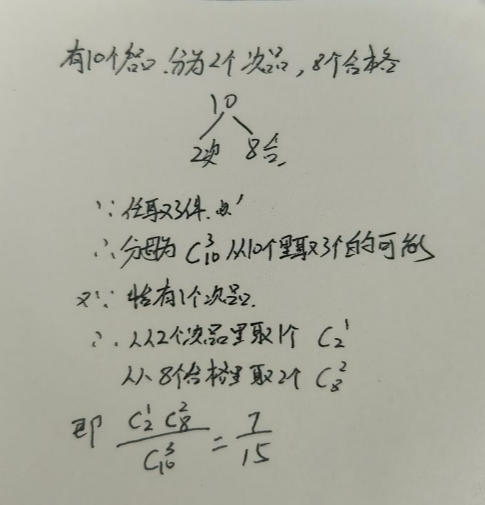 有10个品.分为2个次品,8个合格
10
2次 8合
∵ 任取3件.
∴ 分母为 C₁₀³ 从10个里取3个的可能
又∵ 恰有1个次品.
∴ 从2个次品里取1个 C₂¹
从8个合格里取2个 C₈²
即 C₂¹ C₈² / C₁₀³ = 7/15